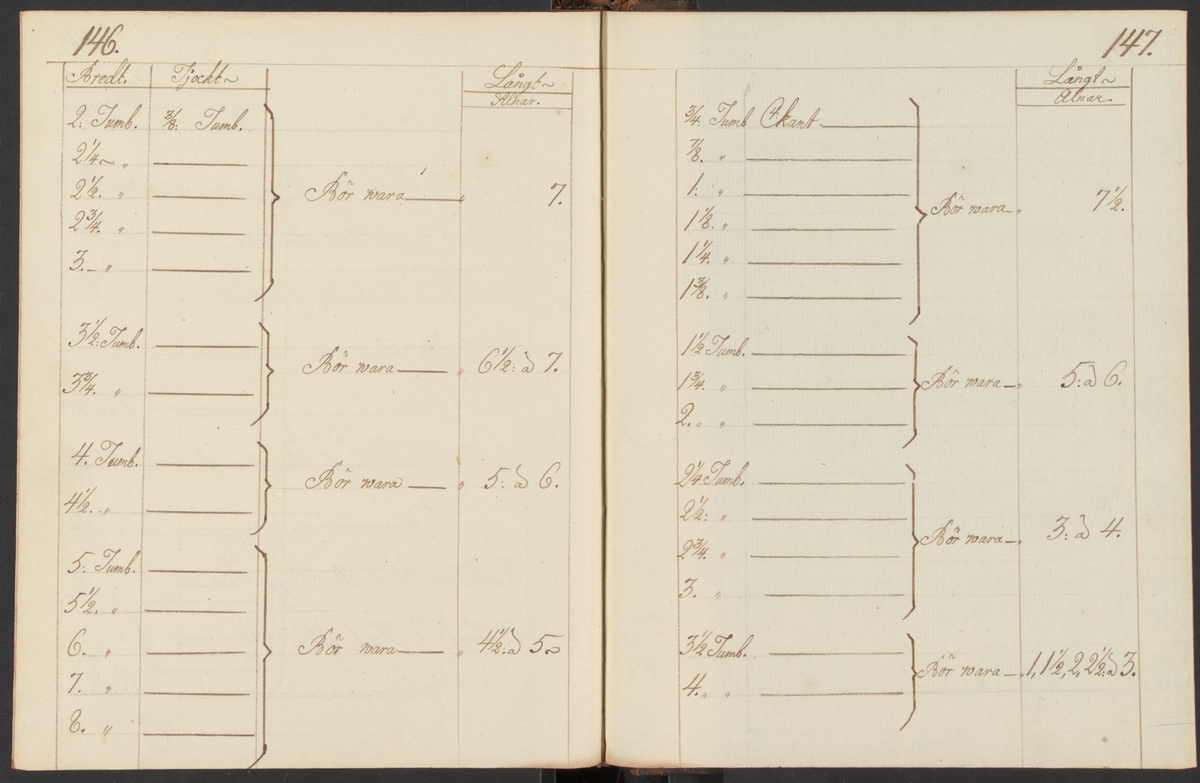 146.
Bredt. Tjockt~ Långt~
Alnar.
2: Tumb. 3/8: Tumb.
2 1/4~ "
2 1/2. " Bör wara " 7.
2 3/4. "
3.– "
3 1/2: Tumb.
Bör wara " 6 1/2: à 7.
3 3/4. "
4. Tumb.
Bör wara " 5: à 6.
4 1/2. "
5: Tumb.
5 1/2. "
6. " Bör wara " 4 1/2: à 5~
7. "
8. "
147.
Långt~
Alnar.
3/4. Tumb 4kant
7/8. "
1: " Bör wara " 7 1/2.
1 1/8. "
1 1/4. "
1 3/8. "
1 1/2 Tumb.
1 3/4. " Bör wara " 5: à 6.
2. " "
2 1/4 Tumb.
2 1/2: "
Bör wara " 3: à 4.
2 3/4. "
3. "
3 1/2 Tumb.
Bör wara 1, 1 1/2, 2, 2 1/2: à 3.
4. " "